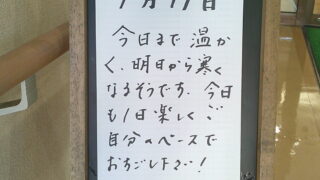 今日まで温か
く、明日から寒く
なるそうです。今日
も1日楽しくご
自分のペースで
おすごし下さい!